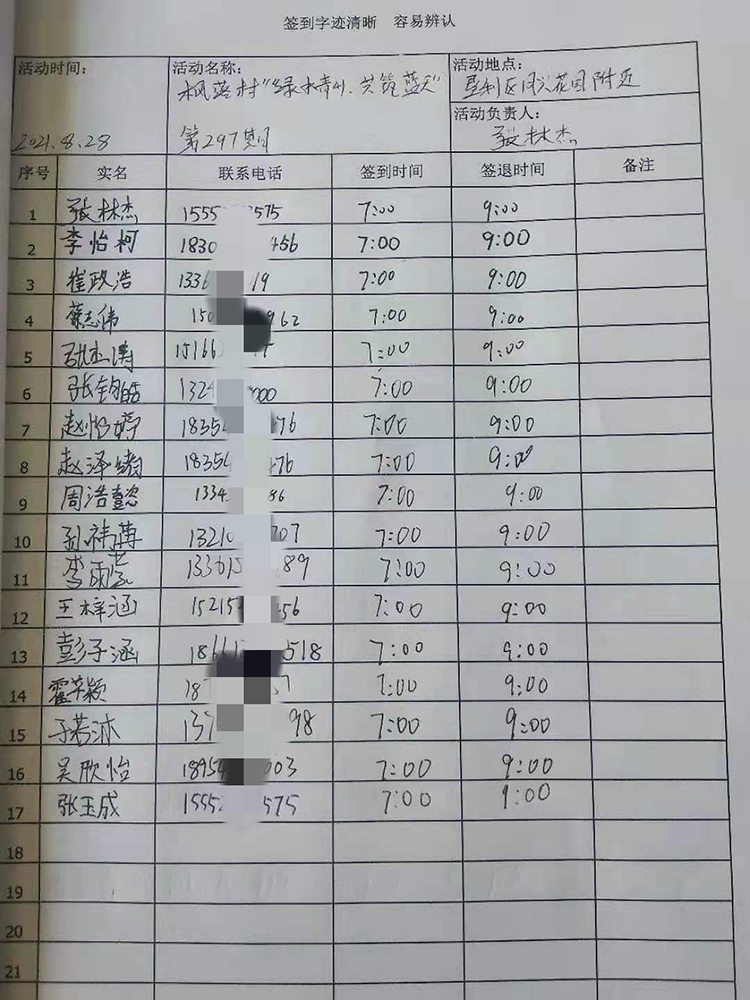 签到字迹清晰 容易辨认
活动时间： 活动名称： 活动地点：
枫落村"绿水青山、共筑蓝天" 垦利区同兴花园附近
活动负责人：
2021.8.28 第297期 张林杰
序号 实名 联系电话 签到时间 签退时间 备注
1 张林杰 1555 575 7:00 9:00
2 李怡柯 1830 456 7:00 9:00
3 崔政浩 1336 19 7:00 9:00
4 蔡志伟 150 962 7:00 9:00
5 15166 7:00 9:00
6 张钧皓 1324 000 7:00 9:00
7 赵怡婷 1835 76 7:00 9:00
8 赵泽 1835 476 7:00 9:00
9 周浩懿 1334 86 7:00 9:00
10 1321 707 7:00 9:00
11 李雨 133615 89 7:00 9:00
12 王梓涵 15215 56 7:00 9:00
13 彭子涵 1866 518 7:00 9:00
14 霍 18 7 7:00 9:00
15 于若沐 137 98 7:00 9:00
16 吴欣怡 1895 003 7:00 9:00
17 张玉成 1555 575 7:00 9:00
18
19
20
21